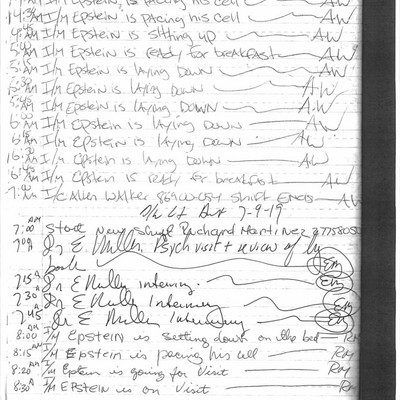 AM I/M Epstein, is pacing his cell AW
AM I/M Epstein is pacing his cell AW
AM I/M Epstein is sitting up AW
AM I/M Epstein is ready for breakfast AW
AM I/M Epstein is laying down AW
AM I/M Epstein is laying down AW
AM I/M Epstein is laying down AW
AM I/M Epstein is laying down AW
AM I/M Epstein is laying down AW
AM I/M Epstein is laying down AW
AM I/M Epstein is ready for breakfast AW
7:00 AM I/C Allen Walker shift ends AW
7-9-19
7:00 AM Start new shift Richard Martinez
7:00 Dr E Miller Psych visit + review of log
book EM
7:15 A Dr E Miller Interview EM
7:30 A Dr E Miller Interview EM
7:45 Dr E Miller Interviewing EM
8:00 AM I/M Epstein is setting down on the bed RM
8:15 AM I/M Epstein is pacing his cell RM
8:20 AM I/M Epstein is going for visit RM
8:30 A I/M Epstein is on visit RM